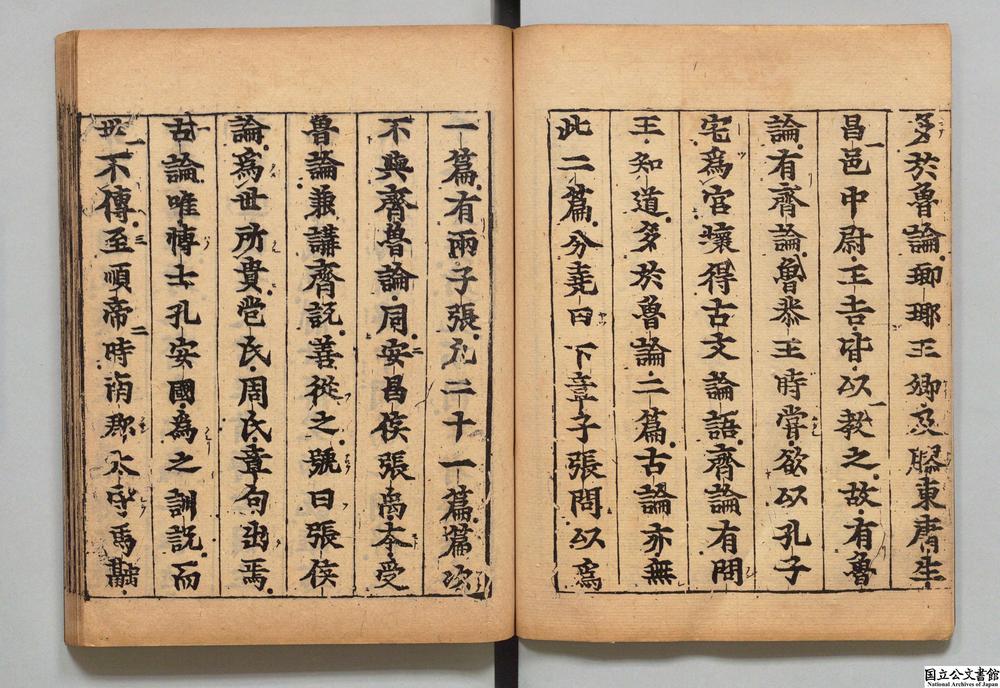 多於魯論琊瑘王卿及膠東庸生
昌邑中尉王吉皆以教之故有魯
論有齊論魯恭王時甞欲以孔子
宅爲宮壞得古文論語齊論有問
王知道多於魯論二篇古論亦無
此二篇分堯曰下章子張問以爲
一篇有兩子張凡二十一篇篇次
不與齊魯論同安昌侯張禹本受
魯論兼講齊説善從之號曰張侯
論爲世所貴苞氏周氏章句出焉
古論唯博士孔安國爲之訓説而
世不傳至順帝時南郡太守馬融
国立公文書館
National Archives of Japan